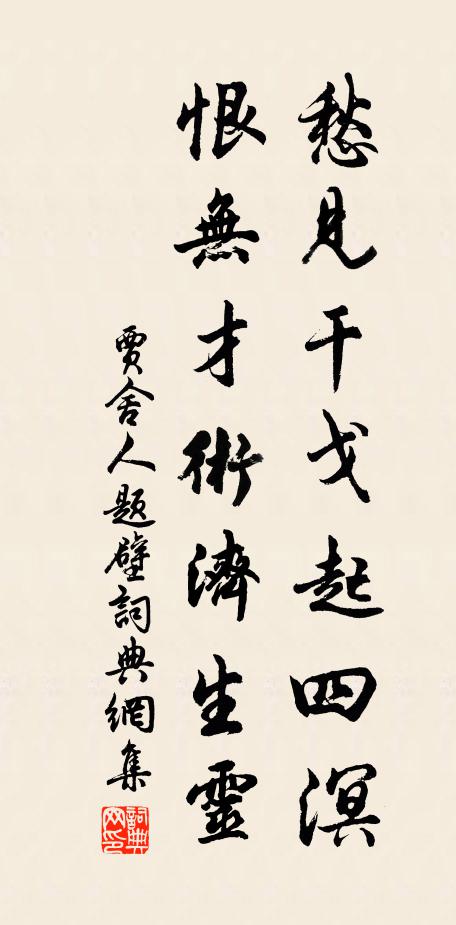 愁見干戈起四溟
恨無才術濟生靈
賈舍人題壁詞典網集
詞典网印